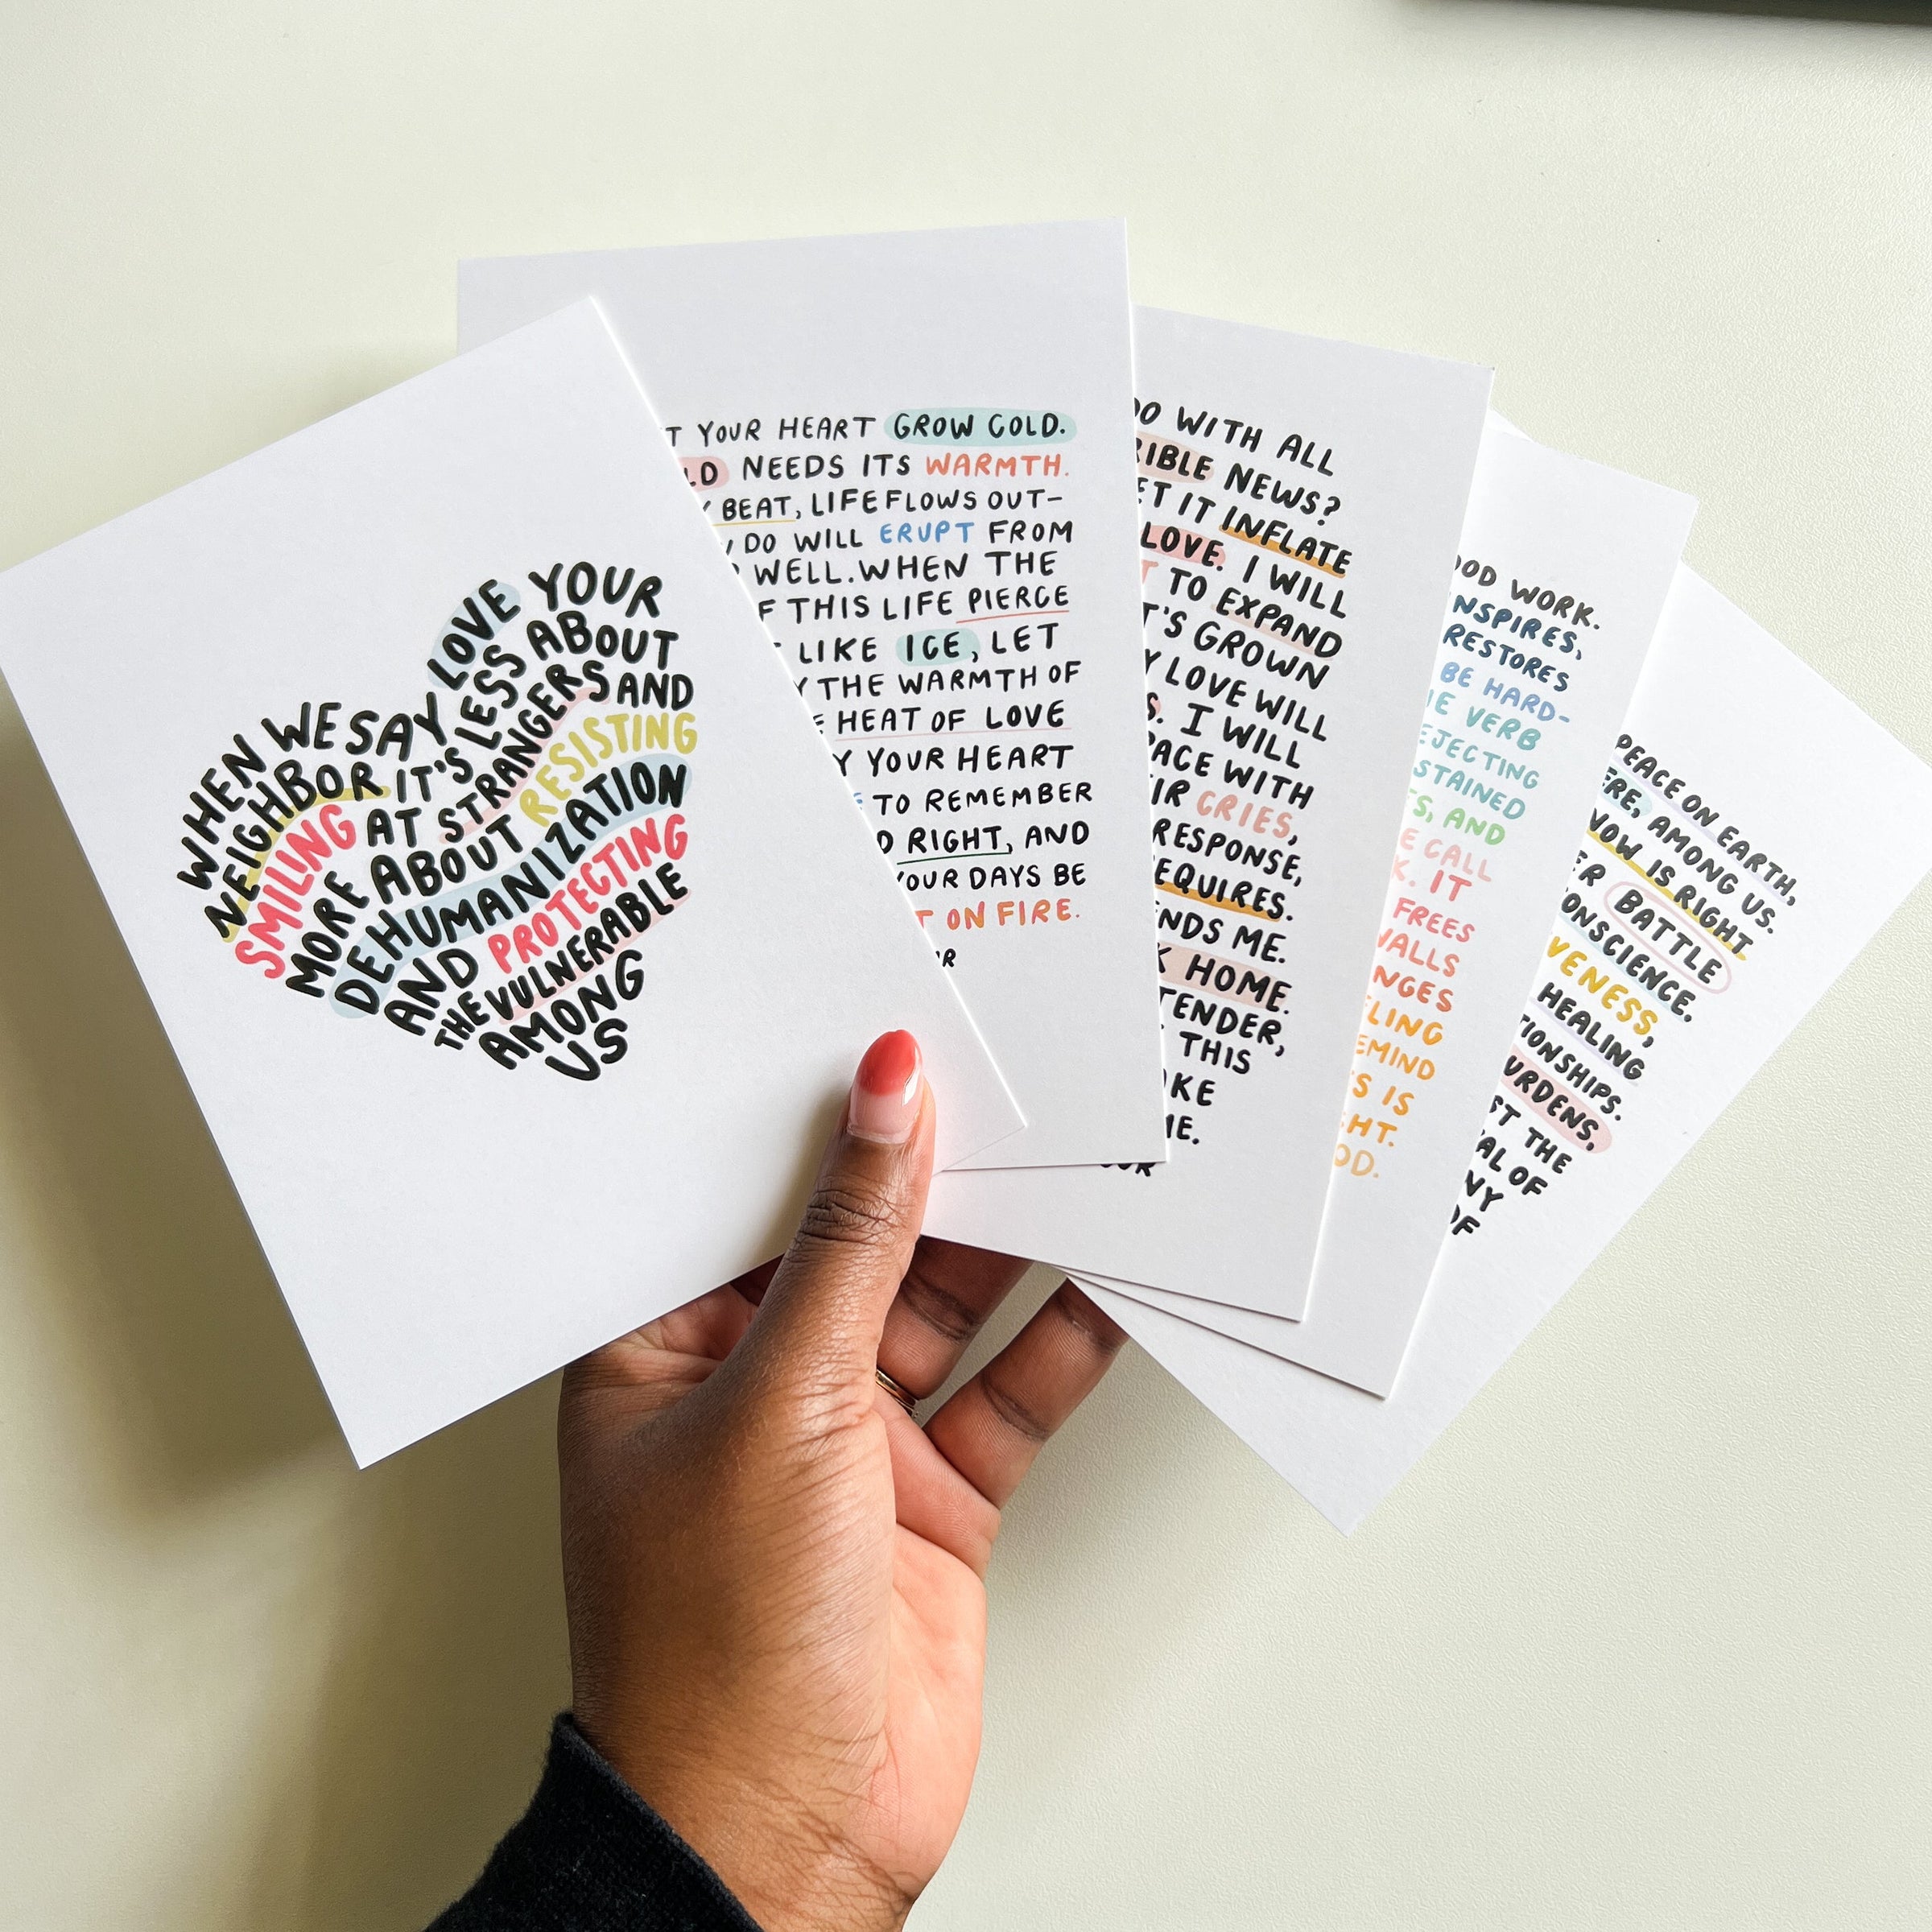 WHEN WE SAY LOVE YOUR
NEIGHBOR IT'S LESS ABOUT
SMILING AT STRANGERS AND
MORE ABOUT RESISTING
DEHUMANIZATION
AND PROTECTING
THE VULNERABLE
AMONG
US
YOUR HEART GROW COLD.
NEEDS ITS WARMTH.
BEAT, LIFE FLOWS OUT-
DO WILL ERUPT FROM
WELL. WHEN THE
OF THIS LIFE PIERCE
LIKE ICE, LET
THE WARMTH OF
HEAT OF LOVE
YOUR HEART
TO REMEMBER
RIGHT, AND
YOUR DAYS BE
ON FIRE.
DO WITH ALL
NEWS?
IT INFLATE
LOVE. I WILL
TO EXPAND
IT'S GROWN
LOVE WILL
I WILL
WITH
CRIES,
RESPONSE,
REQUIRES.
ME.
HOME.
TENDER,
THIS
WORK.
INSPIRES,
RESTORES
BE HARD-
VERB
REJECTING
AND
CALL
IT
FREES
WALLS
IS
PEACE ON EARTH,
AMONG US.
NOW IS RIGHT
BATTLE
CONSCIENCE,
HEALING
THE
OF
OF